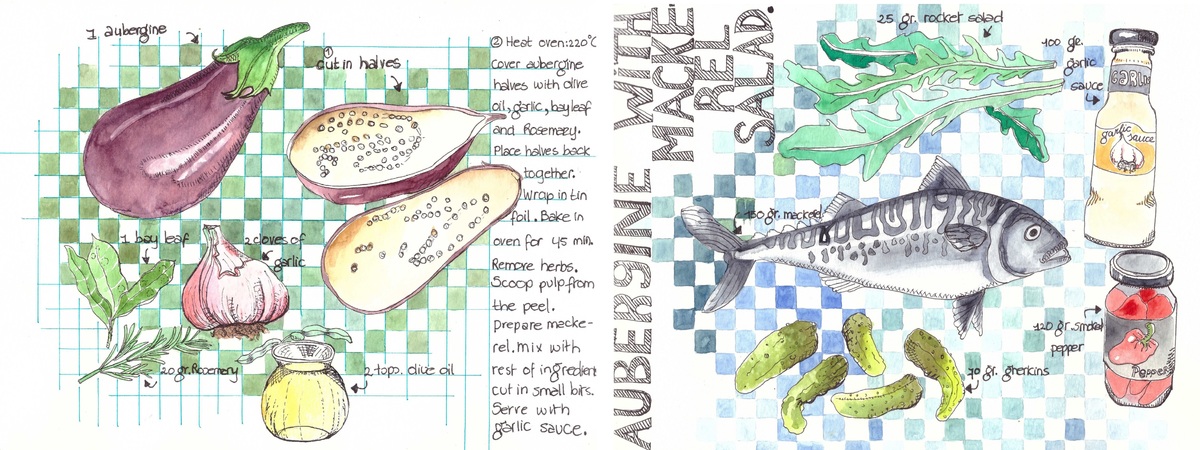 1 aubergine
①
cut in halves
② Heat oven: 220°C
Cover aubergine
halves with olive
oil, garlic, bayleaf
and Rosemary.
Place halves back
together.
Wrap in tin
foil. Bake in
oven for 45 min.
Remove herbs.
Scoop pulp from
the peel.
Prepare macke-
rel. mix with
rest of ingredient
cut in small bits.
Serve with
garlic sauce.
1 bay leaf
2 cloves of
garlic
20 gr. Rosemary
2 tbps. olive oil
AUBERGINE WITH
MACKE
REL
SALAD.
25 gr. rocket salad
100 gr.
garlic
sauce
GARLIC
garlic
sauce
150 gr. mackerel
120 gr. smoked
pepper
Pepper
70 gr. gherkins